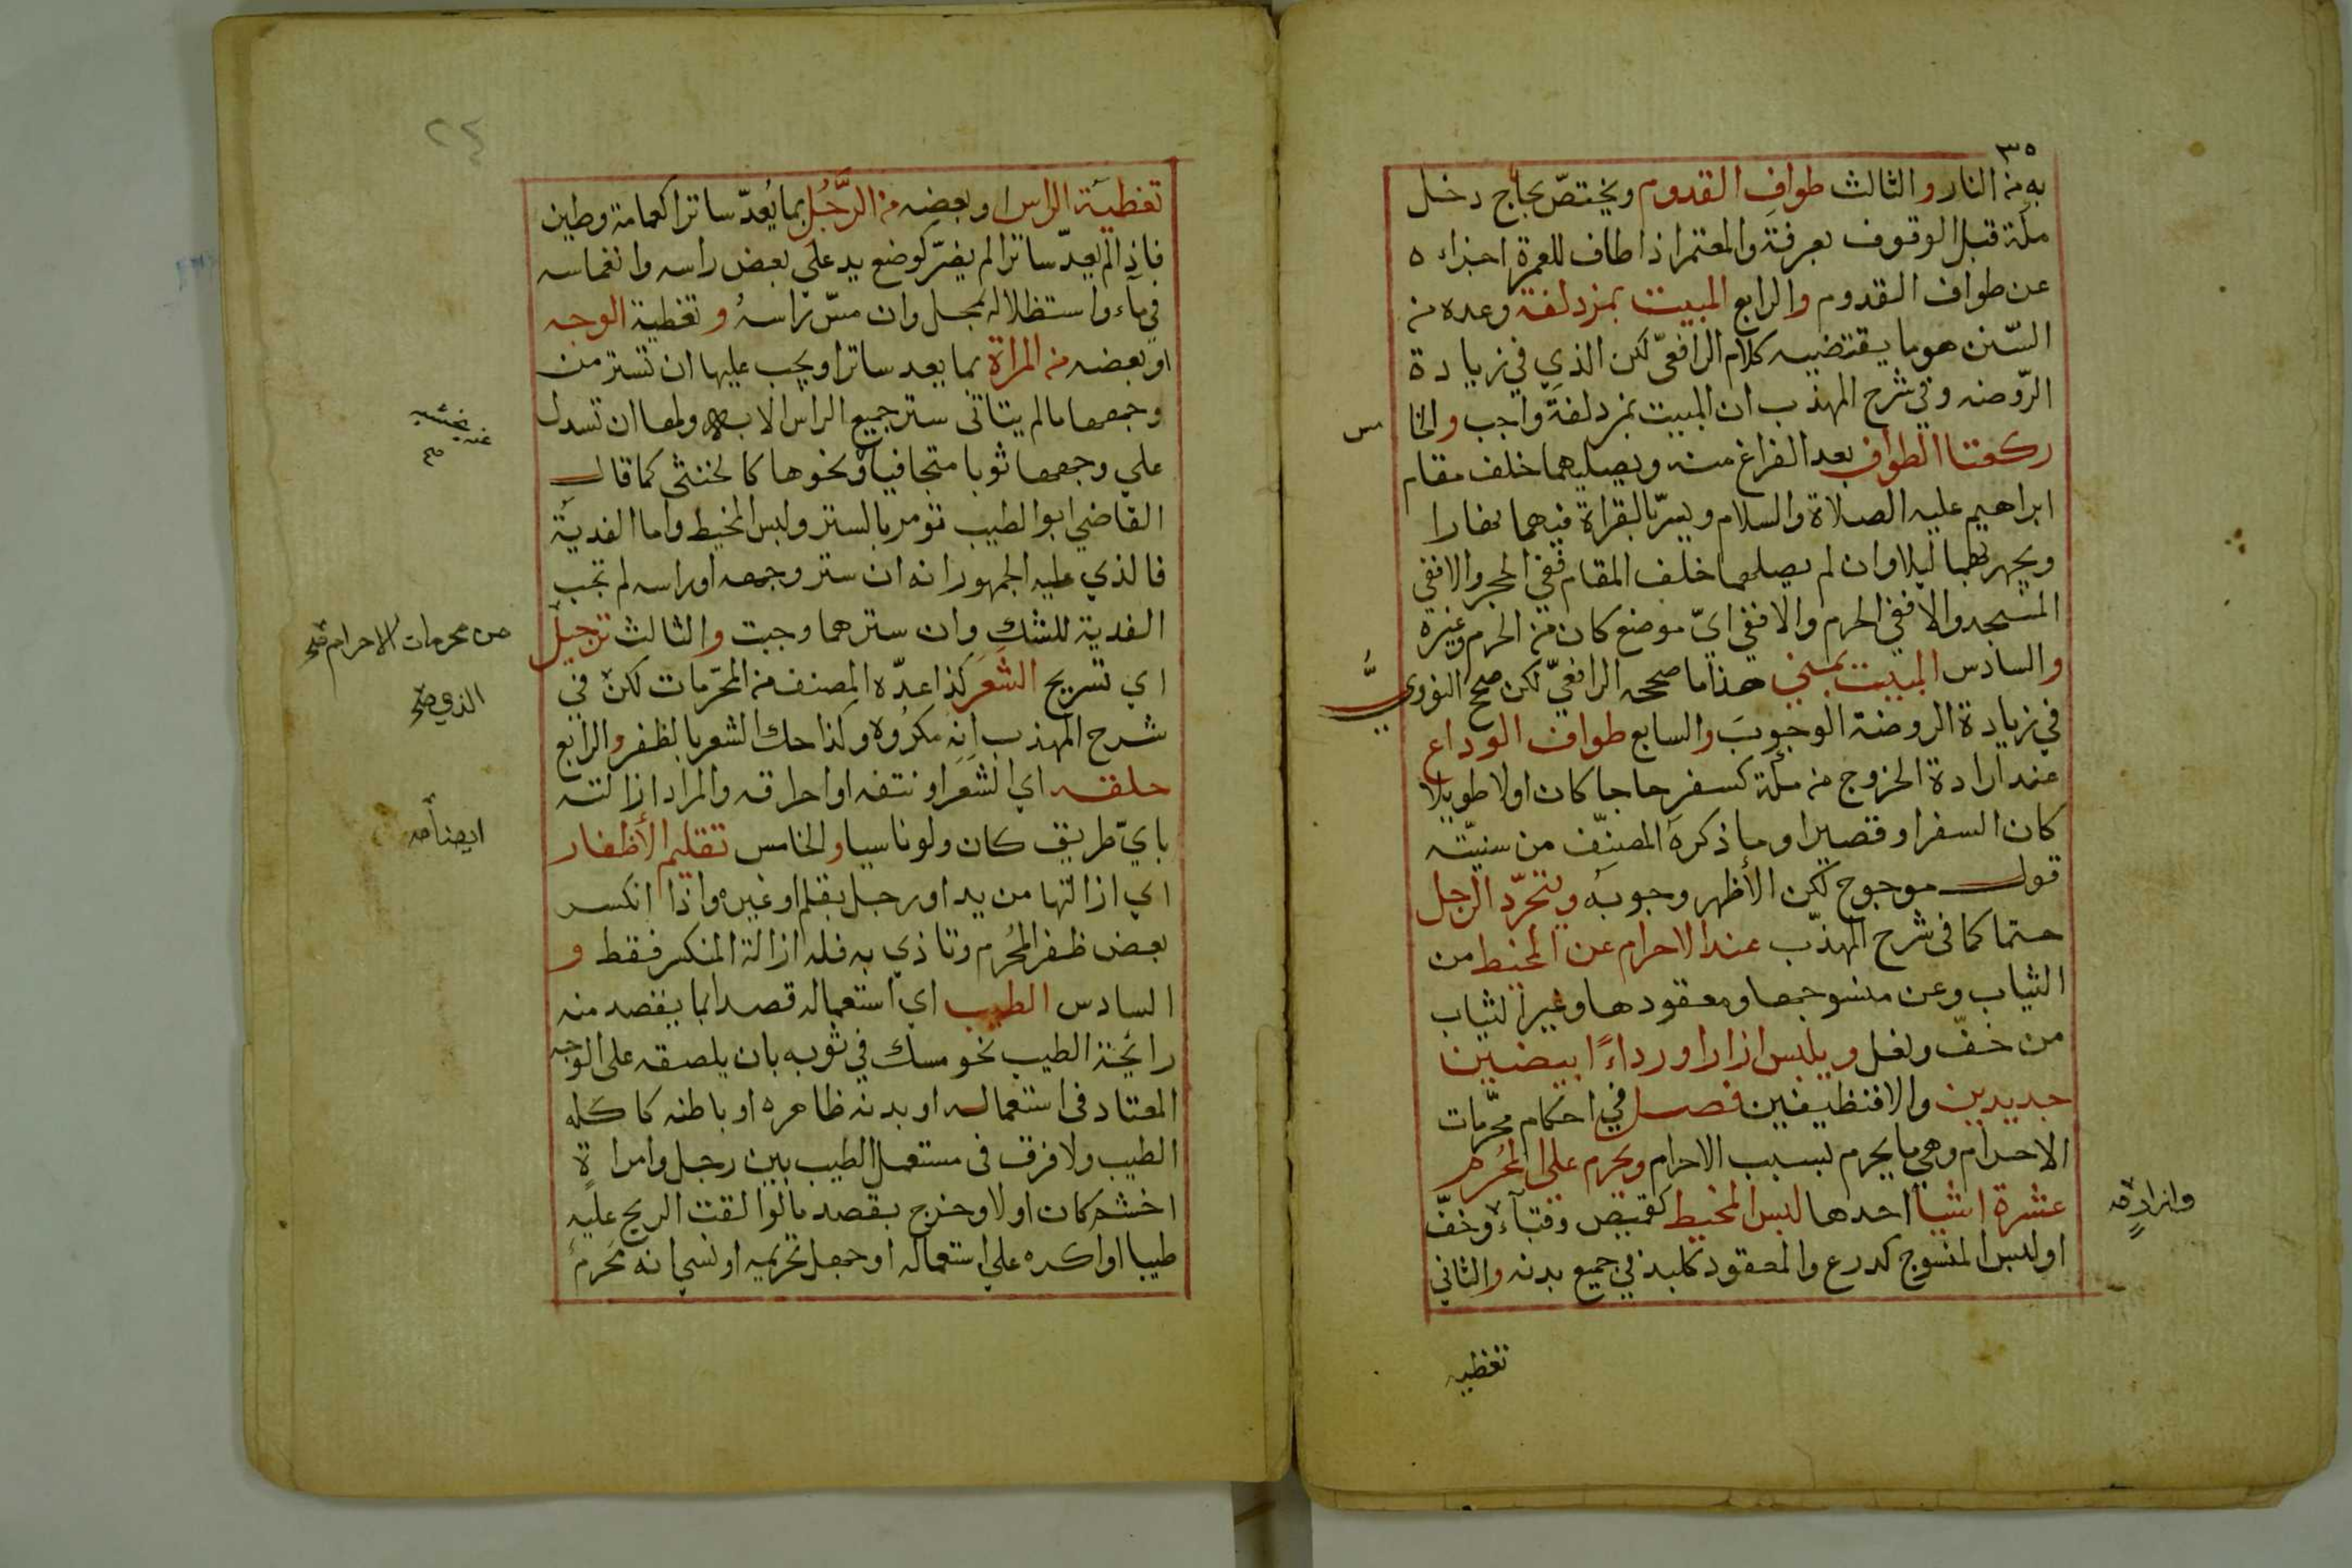 ٣٥
به من النار والثالث طواف القدوم ويختصّ بحاج دخل
مكة قبل الوقوف بعرفة والمعتمر اذا طاف للعمرة اجزاه
عن طواف القدوم والرابع المبيت بمزدلفة وعده من
السّنن هو ما يقتضيه كلام الرافعيّ لكن الذي في زيادة
الرّوضة وفي شرح المهذب ان المبيت بمزدلفة واجب والخا مس
ركعتا الطواف بعد الفراغ منه ويصليهما خلف مقام
ابراهيم عليه الصلاة والسلام ويسرّ بالقراة فيهما نهارا
ويجهر بهما ليلا وان لم يصلهما خلف المقام ففي الحجر والا ففي
المسجد والا ففي الحرم والا ففي ايّ موضع كان من الحرم وغيره
والسادس المبيت بمنى هذا ما صححه الرافعيّ لكن صحح النوويّ
في زيادة الروضة الوجوبَ والسابع طواف الوداع
عند ارادة الخروج من مكة لسفر حاجا كان اولا طويلا
كان السفر او قصيرا وما ذكره المصنّف من سنيّته
قول مرجوح لكن الأظهر وجوبه ويتجرّد الرجل
حتما كما فى شرح المهذّب عند الاحرام عن المخيط من
الثياب وعن منسوجها ومعقودها وغير الثياب
من خفّ ونعل ويلبس ازارا ورداءً ابيضين
جديدين والا فنظيفين فصل في احكام محرّمات
الاحرام وهي ما يحرم بسبب الاحرام ويحرم على المُحْرِم
عشرة اشيا احدها لبس المخيط كقميص وقباء وخفّ
او لبس المنسوج كدرع والمعقود كلبد في جميع بدنه والثاني
تغطيه
٢٤
تغطية الراس او بعضه من الرَّجُل بما يُعدّ ساترا كعمامة وطين
فاذا لم يعدّ ساترا لم يضرّ كوضع يد على بعض راسه وانغماسه
في ماء واستظلاله بمحمل وان مسّ راسهُ وتغطية الوجه
او بعضه من المراة بما يعد ساترا ويجب عليها ان تستر من
وجهها ما لم يتاتى ستر جميع الراس الا به ولها ان تسدل
علي وجهها ثوبا متجافيا ونحوها كالخنثى كما قال
القاضي ابو الطيب تومر بالستر ولبس المخيط واما الفدية
فالذي عليه الجمهور انه ان ستر وجهه او راسه لم تجب
الفدية للشك وان سترهما وجبت والثالث ترجيل
اي تسريح الشَعَر كذا عدّه المصنف من المحرّمات لكن في
شرح المهذب انه مكرُوه وكذا حك الشعر بالظفر والرابع
حلقه اي الشعَر او نتفه او احراقه والمراد ازالته
بايّ طريق كان ولو ناسيا والخامس تقليم الأظفار
اي ازالتها من يد او رجل بقلم او غيره واذا انكسر
بعض ظفر المُحُرم وتاذي به فله ازالة المنكسر فقط و
السادس الطيب اي استعماله قصدا بما يقصد منه
رائحة الطيب نحو مسك في ثوبه بان يلصقه على الوجه
المعتاد فى استعماله او بدنه ظاهره او باطنه كاكله
الطيب ولا فرق فى مستعمل الطيب بين رجل وامراة
اخشم كان اولا وخرج بقصد ما لو القت الريح عليه
طيبا او اكره علي استعماله او جهل تحريمه او نسي انه مُحرم
من محرمات الاحرام صح
الذي صح
ايضاً صح